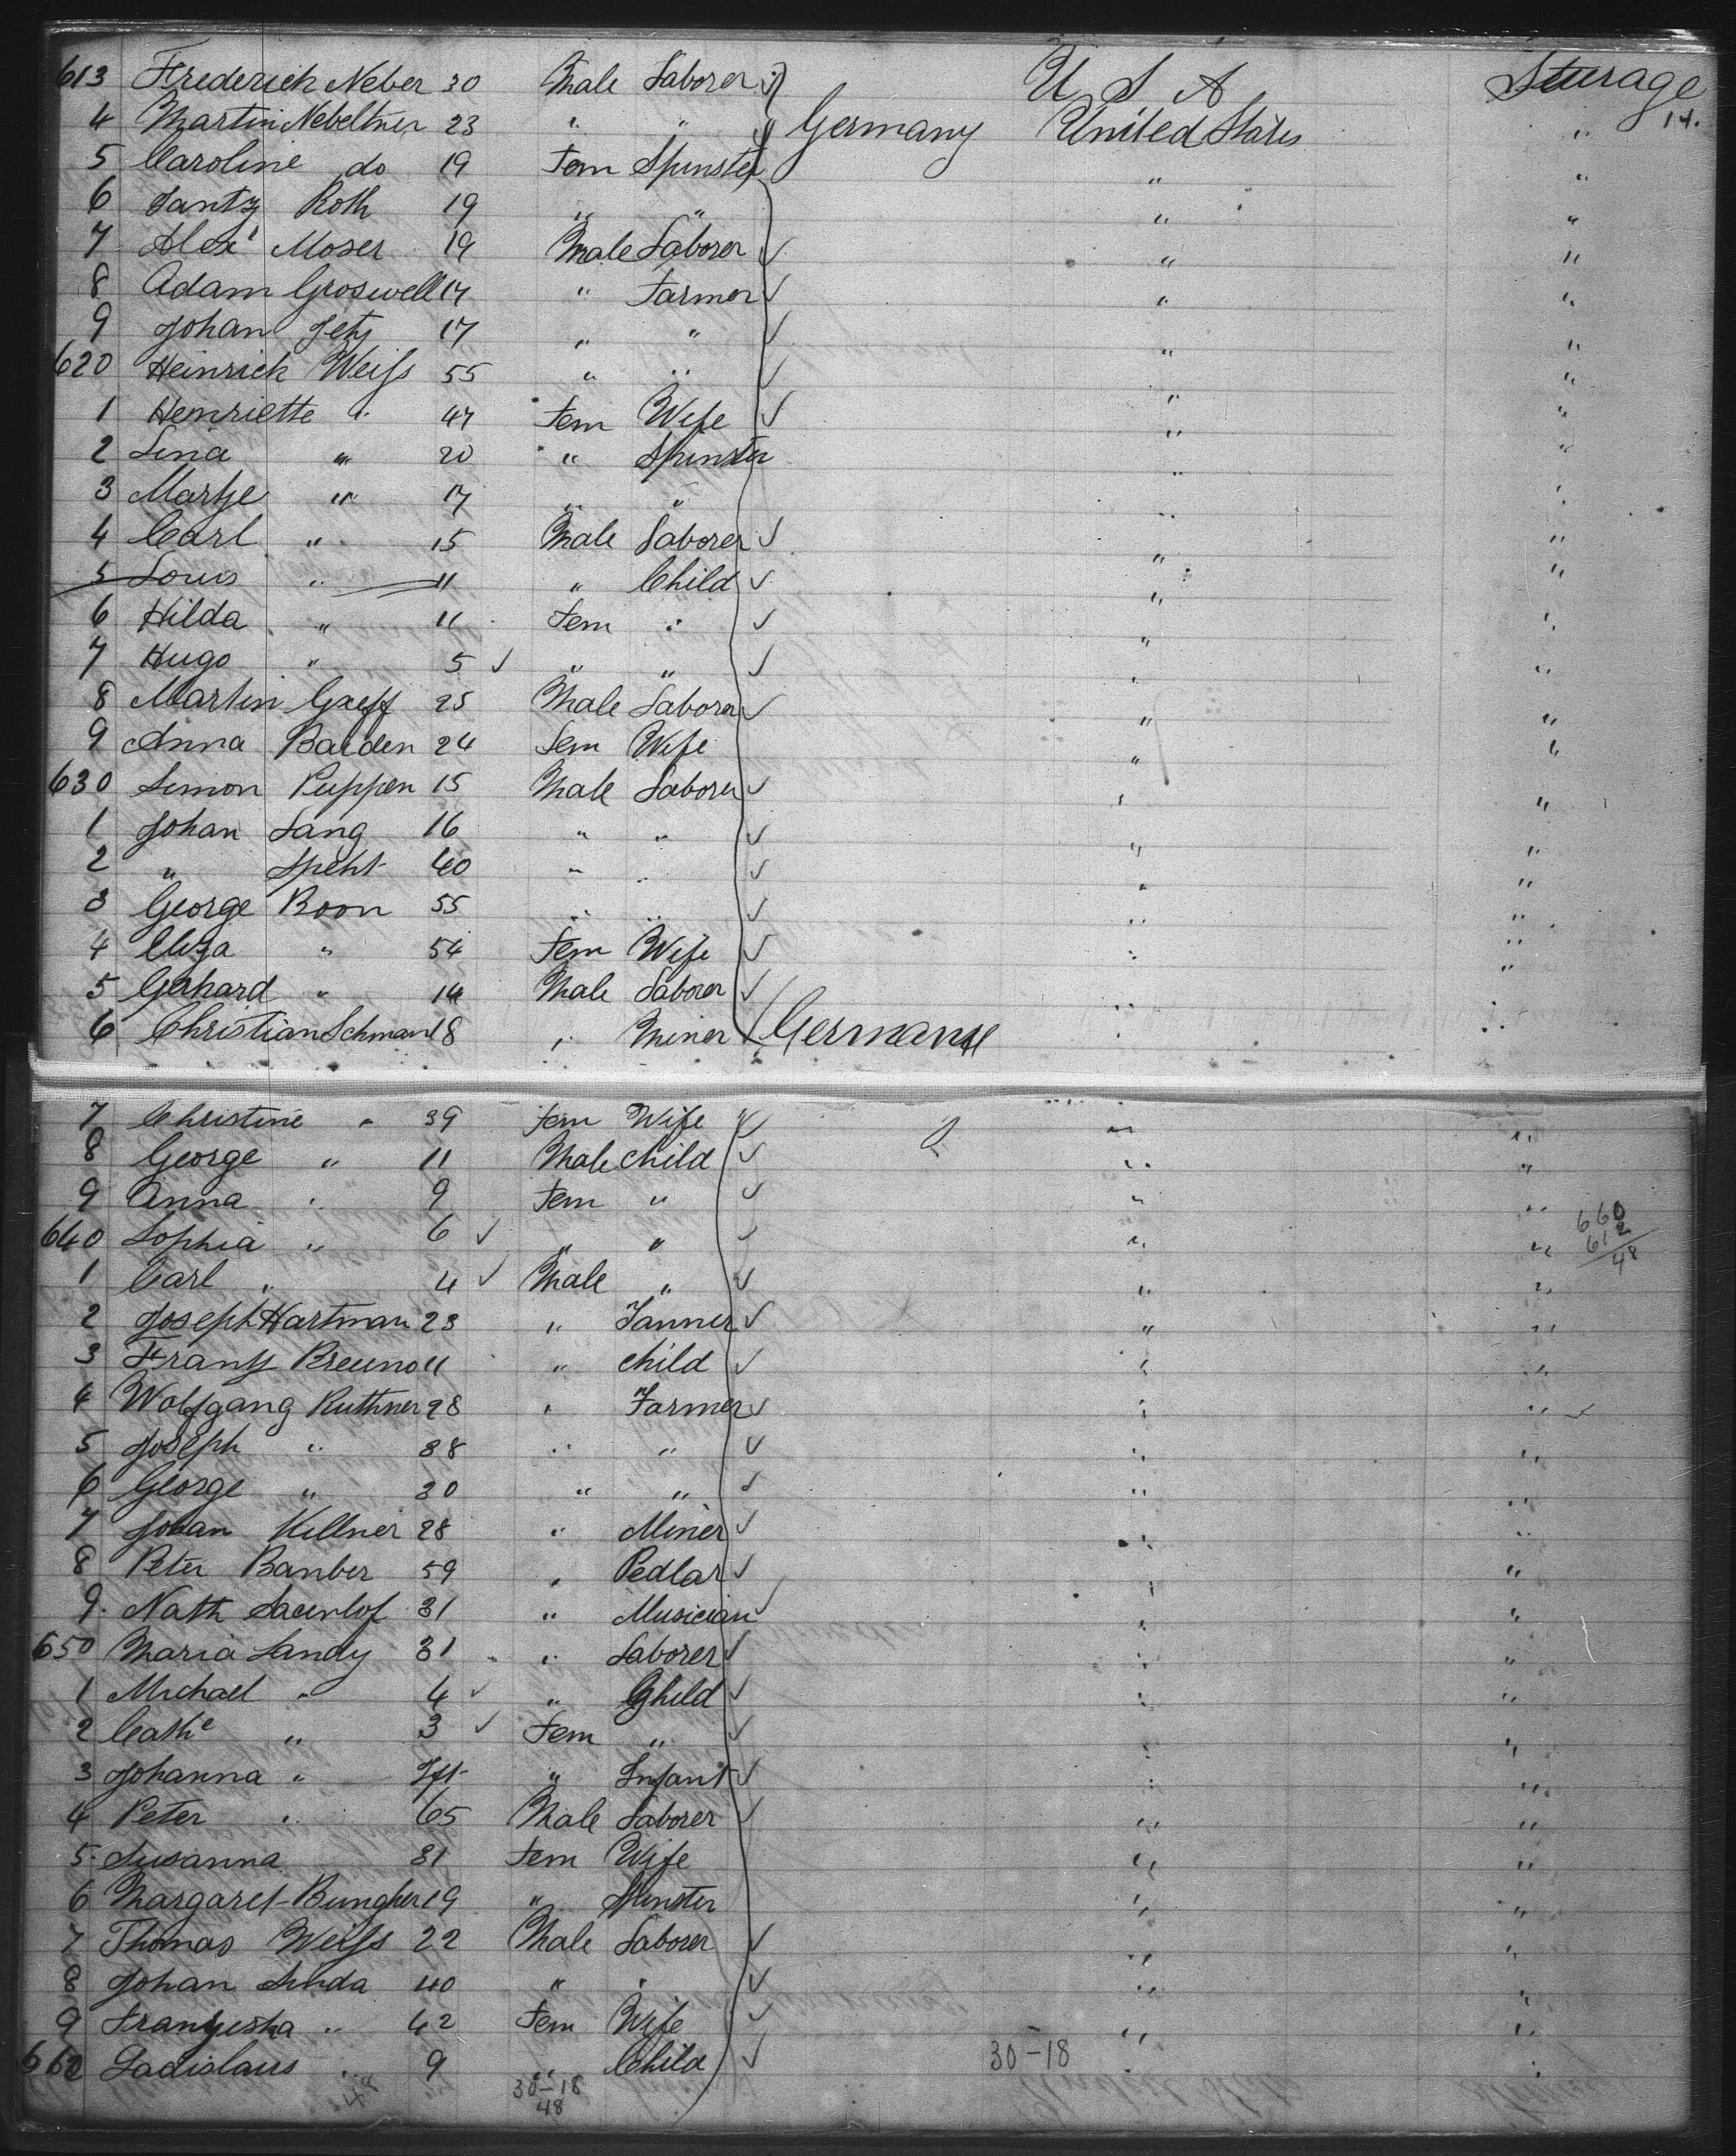 613 Frederich Neber 30 Male Laborer U S A Steerage
14.
4 Martin Nebeltner 23 " " Germany United States "
5 Caroline do 19 Fem Spinster " "
6 Roth 19 " " " "
7 Alex Moser 19 Male Laborer " "
8 Adam Groswell 17 " Farmer " "
9 Johan Jetz 17 " " " "
620 Heinrich Weiss 55 " " " "
1 Henriette " 47 Fem Wife " "
2 Lina " 20 " Spinster " "
3 " 17 " " " "
4 Carl " 15 Male Laborer " "
5 Louis " 11 " Child " "
6 Hilda " 11 Fem " " "
7 Hugo " 5 " " " "
8 Martin Graff 25 Male Laborer " "
9 Anna Barden 24 Fem Wife " "
630 Simon Puppen 15 Male Laborer " "
1 Johan Lang 16 " " " "
2 " Speht 40 " " " "
3 George Boon 55 " " " "
4 Eliza " 54 Fem Wife " "
5 Gerhard " 14 Male Laborer " "
6 Christian Schman 48 " Miner Germany " "
7 Christine " 39 Fem Wife " "
8 George " 11 Male Child " "
9 Anna " 9 Fem " " "
640 Sophia " 6 " " " " 660
612
48
1 Carl " 4 Male " " "
2 Joseph Hartman 23 " Tanner " "
3 Franz Breuno 11 " child " "
4 Wolfgang Ruthner 28 " Farmer " "
5 Joseph " 38 " " " "
6 George " 30 " " " "
7 Johan Killner 28 " Miner " "
8 Peter Banber 59 " Pedlar " "
9 Nath 31 " Musician " "
650 Maria Landy 31 " Laborer " "
1 Michael " 4 " Child " "
2 Cathe " 3 Fem " " "
3 Johanna " Ift " Infant " "
4 Peter " 65 Male Laborer " "
5 Susanna 31 Fem Wife " "
6 Margaret Bungher 19 " Spinster " "
7 Thomas Weiss 22 Male Laborer " "
8 Johan 40 " " " "
9 " 42 Fem Wife " "
660 Ladislaus " 9 " Child 30-18 " "
48 30-18
48